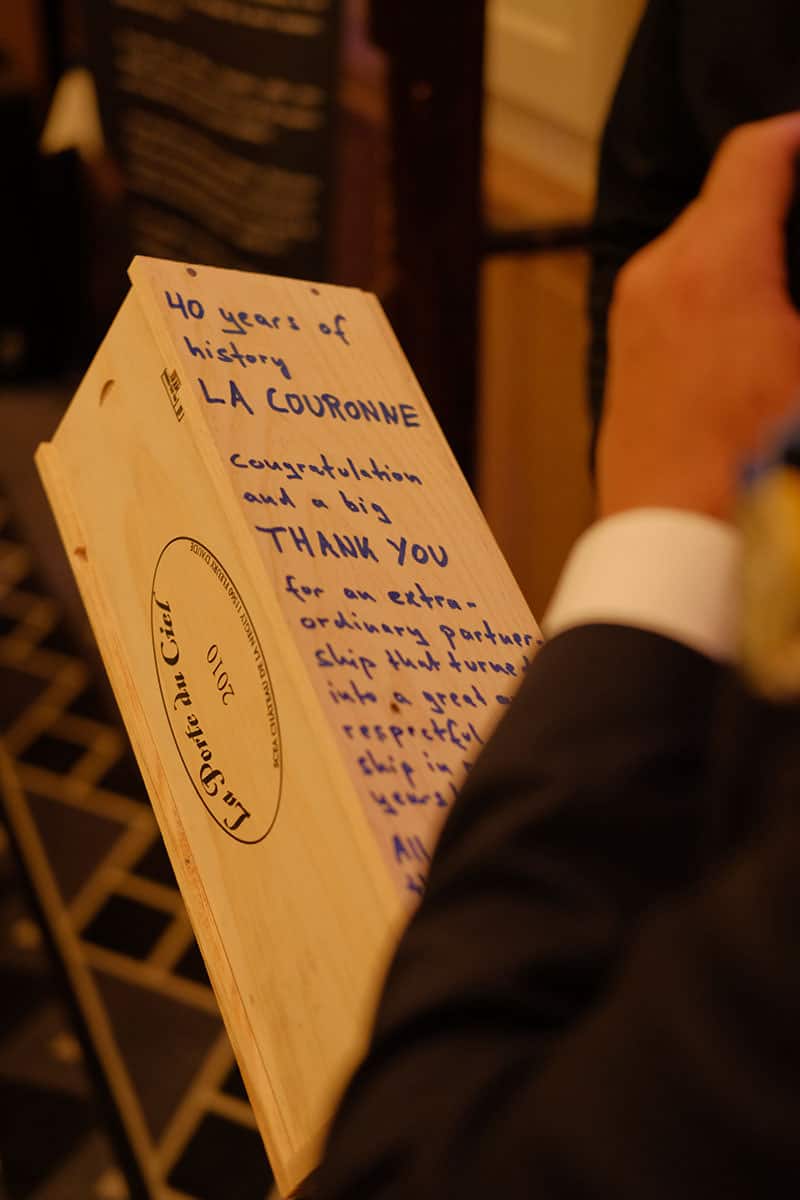 40 years of
history
LA COURONNE
Congratulation
and a big
THANK YOU
for an extra-
ordinary partner-
ship that turne
into a great
respectful
ship in
years
All
La Porte du Ciel
2010
SCEA CHÂTEAU DE LA NEGLY 11560 FLEURY D'AUDE